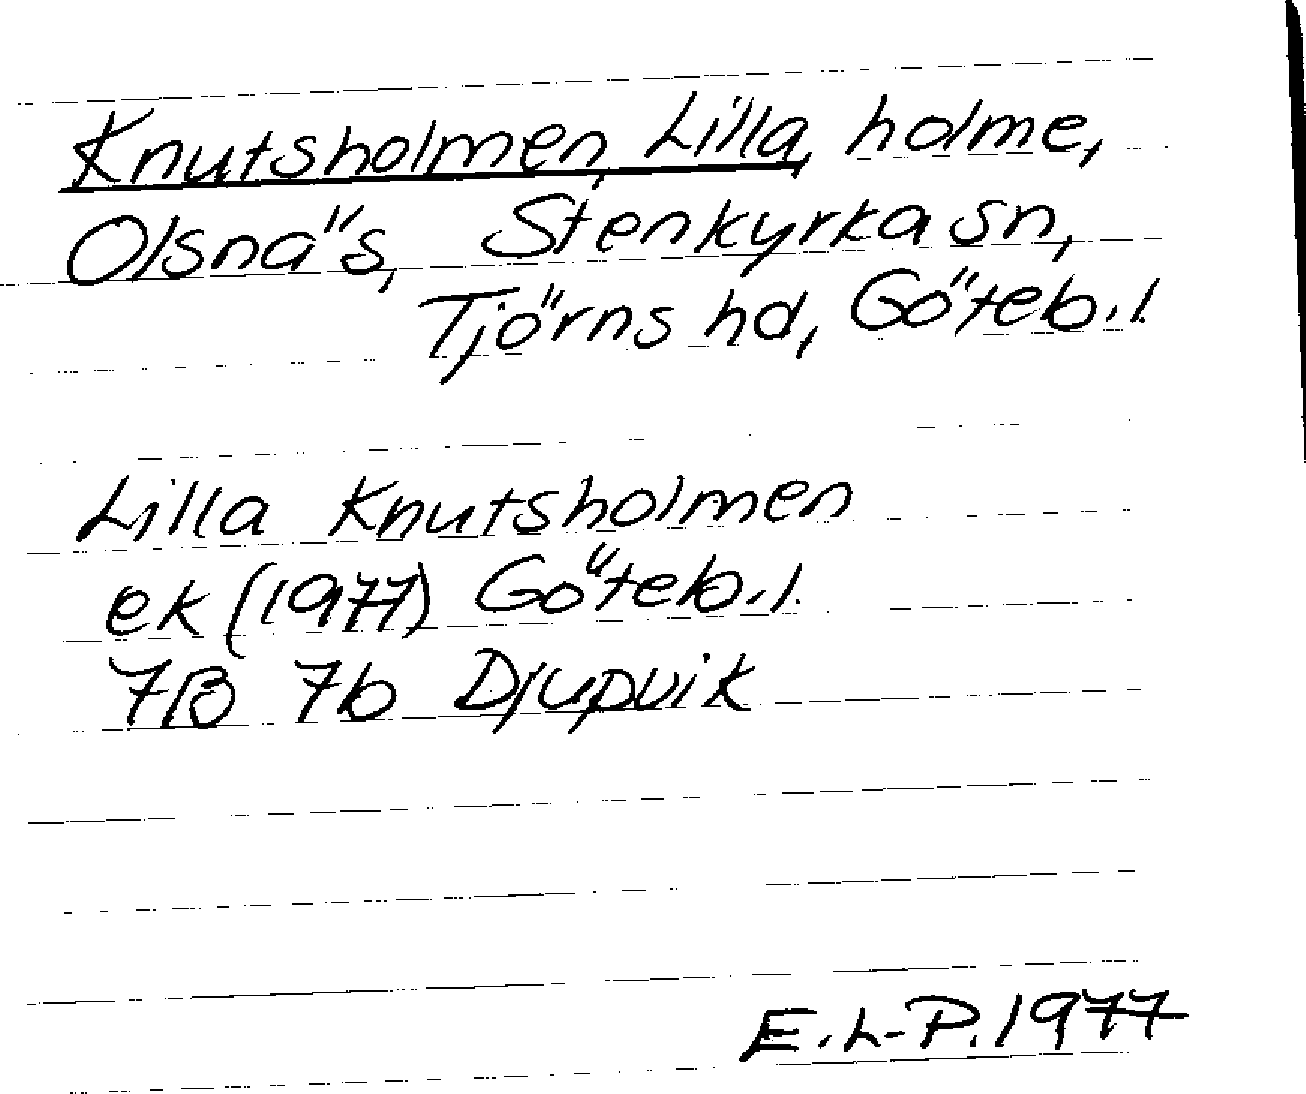 Knutsholmen, Lilla, holme,
Olsnäs, Stenkyrka sn,
Tjörns hd, Göteb.l.
Lilla Knutsholmen
ek (1977) Göteb.l.
7B 7b Djupvik
E.L-P. 1977